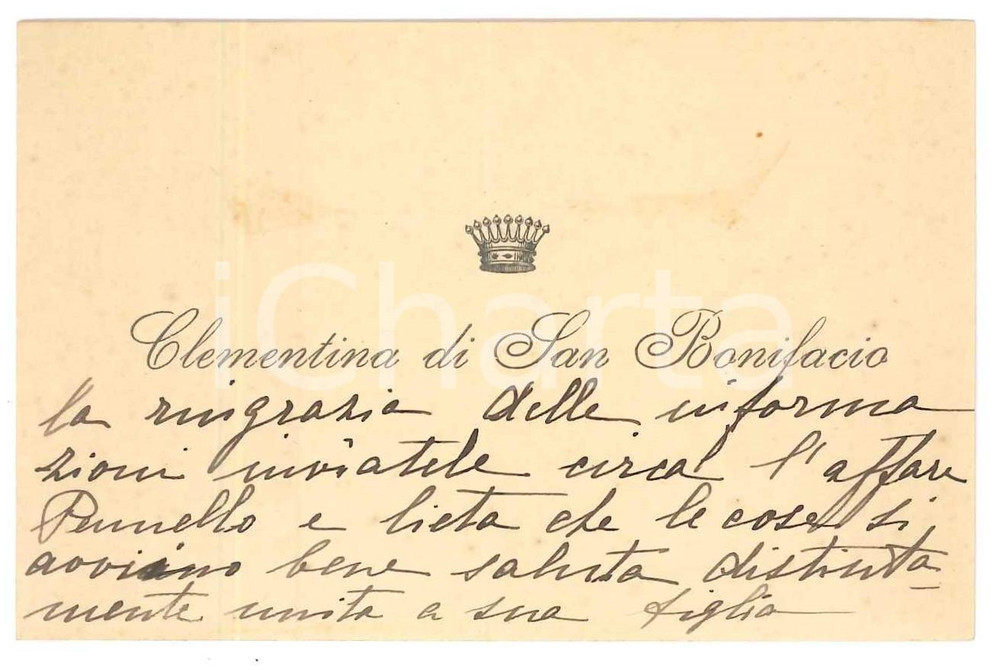 iCharta
Clementina di San Bonifacio
la ringrazia delle informa
zioni inviatele circa l'affare
Pennello e lieta che le cose si
avviino bene saluta distinta=
mente unita a sua figlia